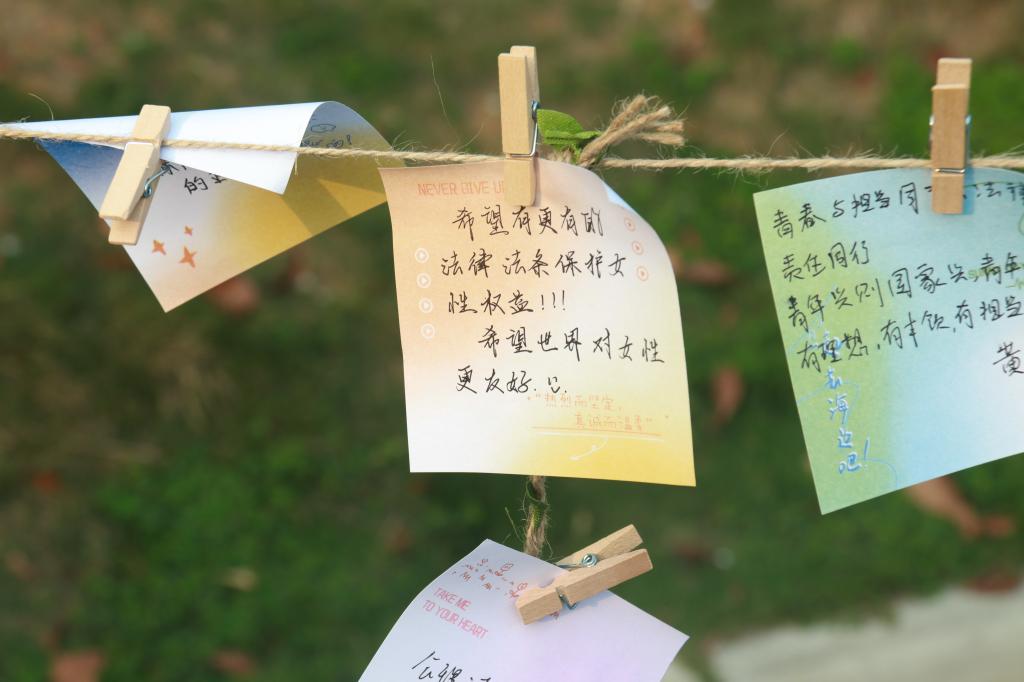 的
NEVER GIVE U
希望有更有的
法律法条保护女
性权益!!!
希望世界对女性
更友好.
"热烈而坚定,
真诚而温柔"
青春与担当同
责任同行
青年兴则国家兴,青年
有理想,有本领,有担当
黄
去海边吧!
TAKE ME
TO YOUR HEART